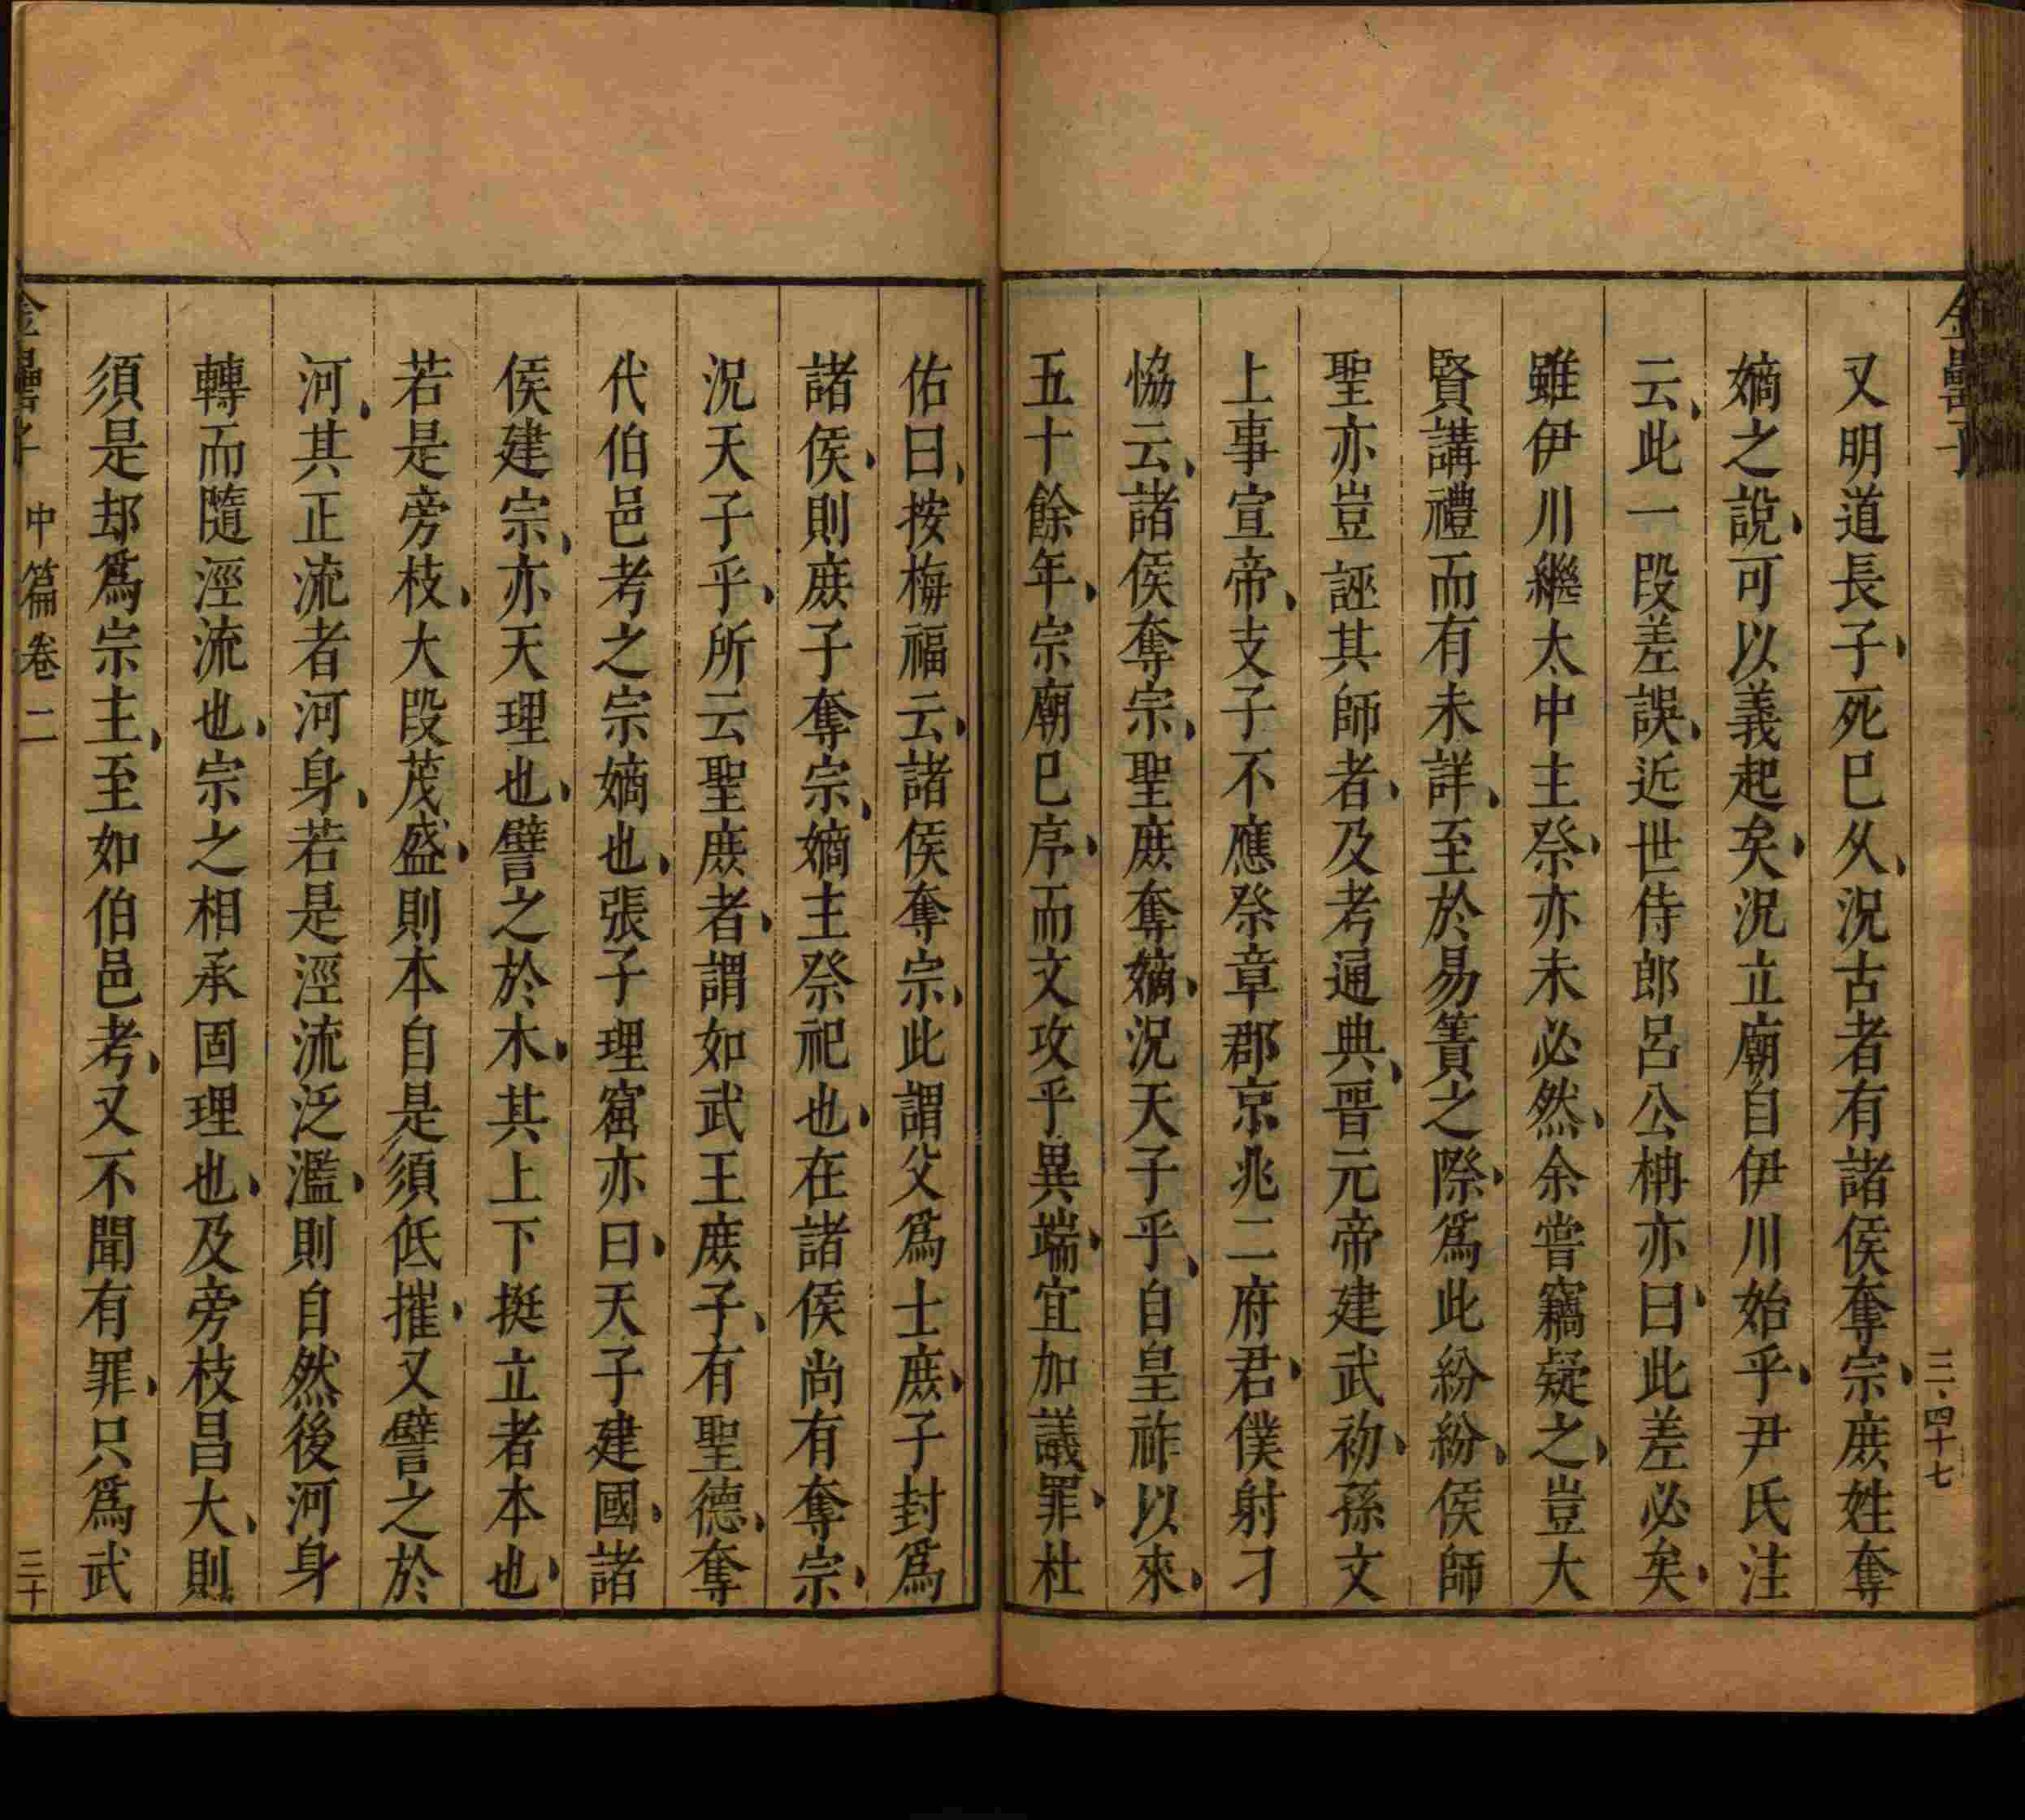 又明道長子死巳久況古者有諸侯奪宗庶姓奪
嫡之說可以義起矣況立廟自伊川始乎尹氏注
云此一段差誤近世侍郎呂公柟亦曰此差必矣
雖伊川繼太中主祭亦未必然余嘗竊疑之豈大
賢講禮而有未詳至於易簀之際爲此紛紛侯師
聖亦豈誣其師者及考通典晉元帝建武初孫文
上事宣帝支子不應祭章郡京兆二府君僕射刁
恊云諸侯奪宗聖庶奪嫡況天子乎自皇祚以來
五十餘年宗廟巳序而文攻乎異端宜加議罪杜
佑曰按梅福云諸侯奪宗此謂父爲士庶子封爲
諸侯則庶子奪宗嫡主祭祀也在諸侯尚有奪宗
況天子乎所云聖庶者謂如武王庶子有聖德奪
代伯邑考之宗嫡也張子理窟亦曰天子建國諸
侯建宗亦天理也譬之於木其上下挺立者本也
若是旁枝大段茂盛則本自是須低摧又譬之於
河其正流者河身若是涇流泛濫則自然後河身
轉而隨涇流也宗之相承固理也及旁枝昌大則
須是却爲宗主至如伯邑考又不聞有罪只爲武
中篇卷二
三十
三四十七